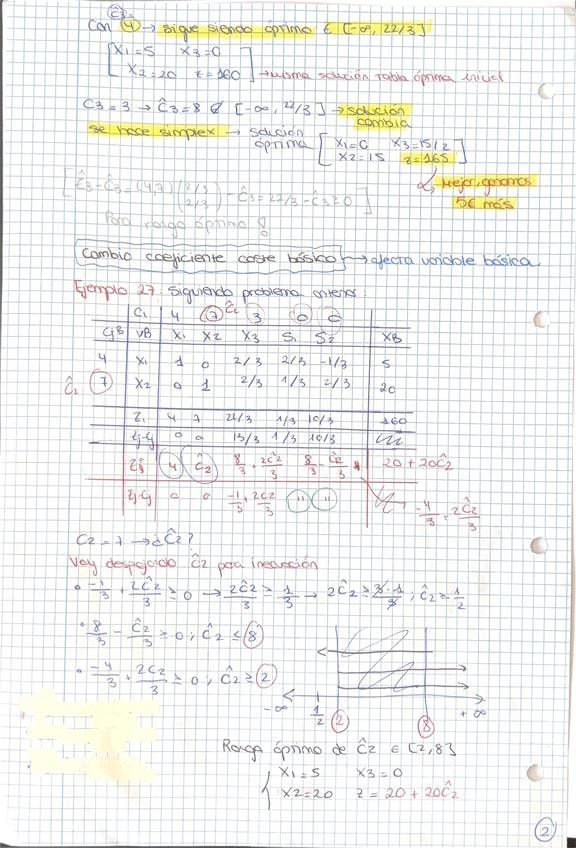 Ĉ3=
Con 4 → sigue siendo óptimo ∈ [-∞, 22/3]
[ X1=5 X3=0
X2=20 z=160 ] → misma solución tabla óptima inicial
C3=3 → Ĉ3=8 ∉ [-∞, 22/3] → solución cambia
se hace simplex → solución óptima [ X1=0 X3=15/2
X2=15 z=165 ]
↳ Mejor, ganamos 5€ más
[ Ẑ3-Ĉ3=(4,7) (2/3 2/3) - Ĉ3 = 22/3 - Ĉ3 ≥ 0 ]
Para rango óptimo 8
Cambio coeficiente coste básico → afecta variable básica.
Ejemplo 27: Siguiendo problema anterior:
Ci 4 7 Ĉ2 3 0 0
CB VB X1 X2 X3 S1 S2 XB
4 X1 1 0 2/3 2/3 -1/3 5
Ĉ2 7 X2 0 1 2/3 1/3 2/3 20
Zj 4 7 22/3 1/3 10/3 160
Zj-Cj 0 0 13/3 1/3 10/3
Zj 4 Ĉ2 8/3 + 2Ĉ2/3 8/3 - Ĉ2/3 * 20+20Ĉ2
Zj-Cj 0 0 -1/3 + 2Ĉ2/3 " " -4/3 + 2Ĉ2/3
C2=7 → ¿Ĉ2?
Voy despejado Ĉ2 para inecuación
• -1/3 + 2Ĉ2/3 ≥ 0 → 2Ĉ2/3 ≥ 1/3 → 2Ĉ2 ≥ 3·1/3 ; Ĉ2 ≥ 1/2
• 8/3 - Ĉ2/3 ≥ 0 ; Ĉ2 ≤ 8
• -4/3 + 2C2/3 ≥ 0 ; Ĉ2 ≥ 2
-∞ 1/2 2 8 +∞
Rango óptimo de Ĉ2 ∈ [2,8]
{ X1=5 X3=0
X2=20 z = 20+20Ĉ2
2